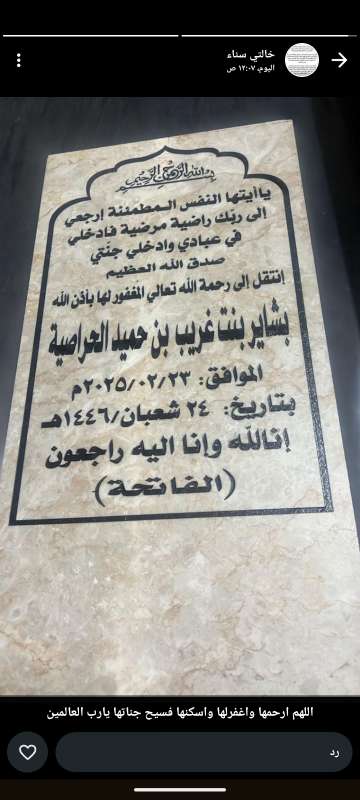 خالتي سناء
اليوم، ١٢:٠٧ ص
بسم الله الرحمن الرحيم
ياأيتها النفس المطمئنة إرجعي
إلى ربك راضية مرضية فادخلي
في عبادي وادخلي جنتي
صدق الله العظيم
إنتقل إلى رحمة الله تعالي المغفور لها بأذن الله
بشاير بنت غريب بن حميد الحراصية
الموافق: ٢٠٢٥/٠٢/٢٣م
بتاريخ: ٢٤ شعبان/١٤٤٦هـ
إنالله وإنا اليه راجعون
(الفاتحة)
اللهم ارحمها واغفرلها واسكنها فسيح جناتها يارب العالمين
رد